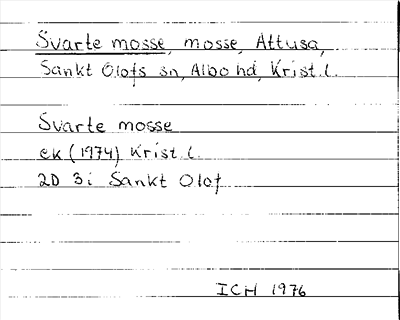 Svarte mosse, mosse, Attusa,
Sankt Olofs sn, Albo hd, Krist. l.
Svarte mosse
ek (1974) Krist l.
2D 3i Sankt Olof
ICH 1976